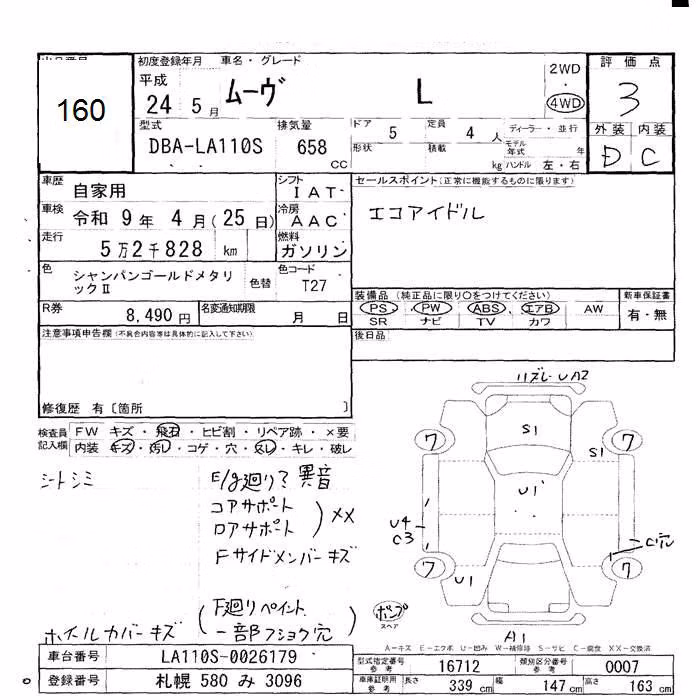 出品番号 初度登録年月 車名・グレード 2WD 評価点
160 平成 24 5月 ムーヴ L ・ 4WD 3
型式 DBA-LA110S 排気量 658 CC ドア 5 定員 4人 ディーラー・並行 外装 内装
形状 積載 kg モデル年式 年 ハンドル 左・右 D C
車歴 自家用 シフト IAT セールスポイント(正常に機能するものに限ります)
車検 令和 9年 4月(25日) 冷房 AAC エコアイドル
走行 5万2千828 km 燃料 ガソリン
色 シャンパンゴールドメタリックⅡ 色替 色コード T27
装備品 (純正品に限り○をつけてください) 新車保証書
PS・PW・ABS・エアB AW 有・無
SR ナビ TV カワ
R券 8,490円 名変通知期限 月 日
注意事項申告欄(不具合内容等は具体的に記入して下さい) 後日品
修復歴 有〔箇所 〕
検査員記入欄 FW キズ・飛石・ヒビ割・リペア跡・×要
内装 キズ・汚レ・コゲ・穴・スレ・キレ・破レ
シートシミ E/g廻り? 異音
コアサポート
ロアサポート ) XX
Fサイドメンバーキズ
(F廻りペイント
一部フショク穴)
ホイールカバーキズ
ハズレ U A2
S1
7 7
S1
U1
U4
C3
C穴
7 7
U1
ポンプ
スペア
A1
A−キズ E−エクボ U−凹み W−補修跡 S−サビ C−腐食 XX−交換済
車台番号 LA110S-0026179 型式指定番号 参考 16712 類別区分番号 参考 0007
登録番号 札幌 580 み 3096 車庫証明用 参考 長さ 339cm 幅 147cm 高さ 163cm